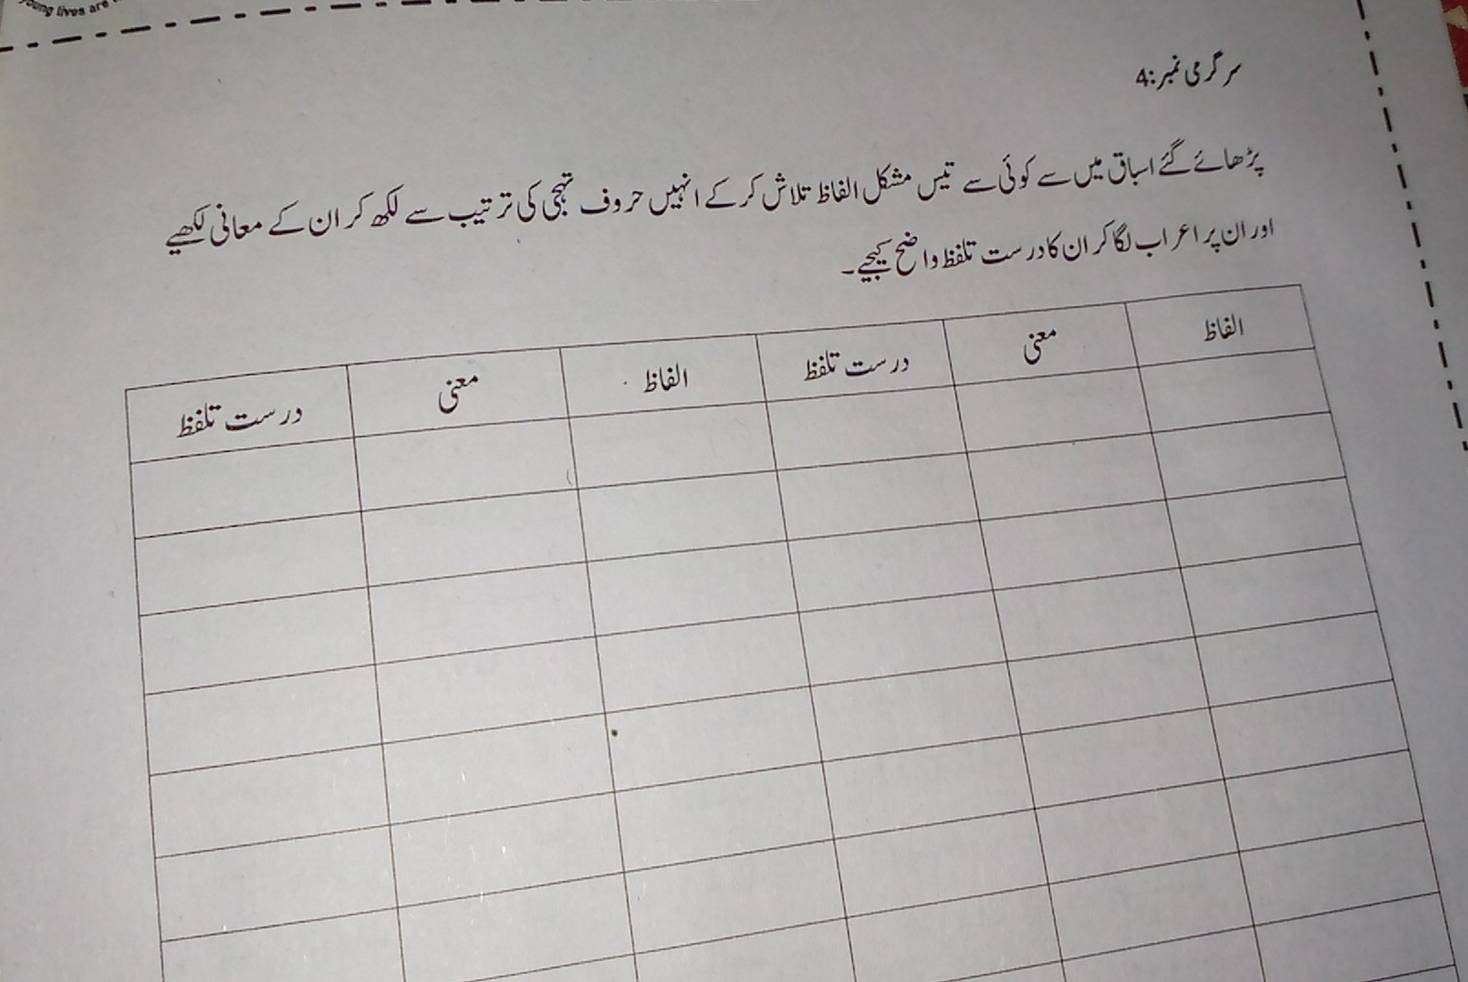 young lives are
سرگرمی نمبر:4
پڑھائے گئے اسباق میں سے کوئی سے تیس مشکل الفاظ تلاش کر کے انہیں حروف تہجی کی ترتیب سے لکھ کر ان کے معانی لکھیے
اور ان پر اعراب لگا کر ان کا درست تلفظ واضح کیجیے۔
الفاظ معنی درست تلفظ الفاظ معنی درست تلفظ